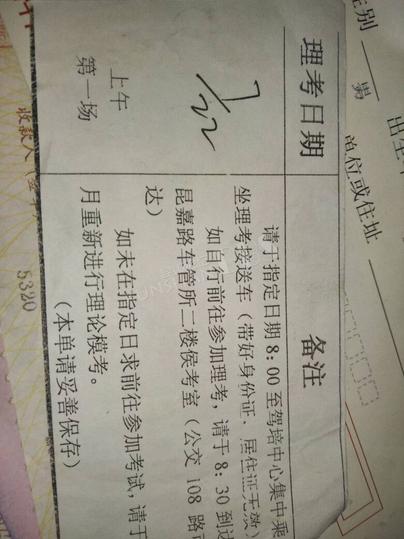 性别 男
出生
单位或住址
理考日期
备注
7/22
上午
第一场
请于指定日期 8:00 至驾培中心集中乘
坐理考接送车（带好身份证、居住证无效）
如自行前往参加理考，请于 8:30 到达
昆嘉路车管所二楼侯考室（公交 108 路可
达）
如未在指定日求前往参加考试，请于
月重新进行理论模考。
（本单请妥善保存）
收款人
5320